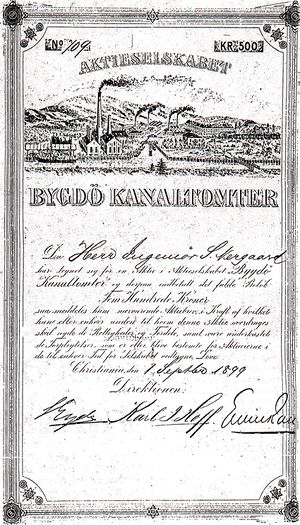 No 709
KR. 500
AKTIESELSKABET
BYGDÖ KANALTOMTER
Da Herr Ingeniør S. Neergaard
har tegnet sig for en Aktie i Aktieselskabet "Bygdö
Kanaltomter" og derpaa indbetalt det fulde Beløb
Fem Hundrede Kroner
saa meddeles ham nærværende Aktiebrev, i Kraft af hvilket
han eller enhver anden til hvem denne Aktie overdrages
skal nyde de Rettigheder og Fordele, samt være underkastet
de Forpligtelser, som er eller blive bestemte for Aktierne i
de til enhver Tid for Selskabet vedtagne Love.
Christiania, den 1 Septbr 1899
Direktionen.
Karl J. Hoff